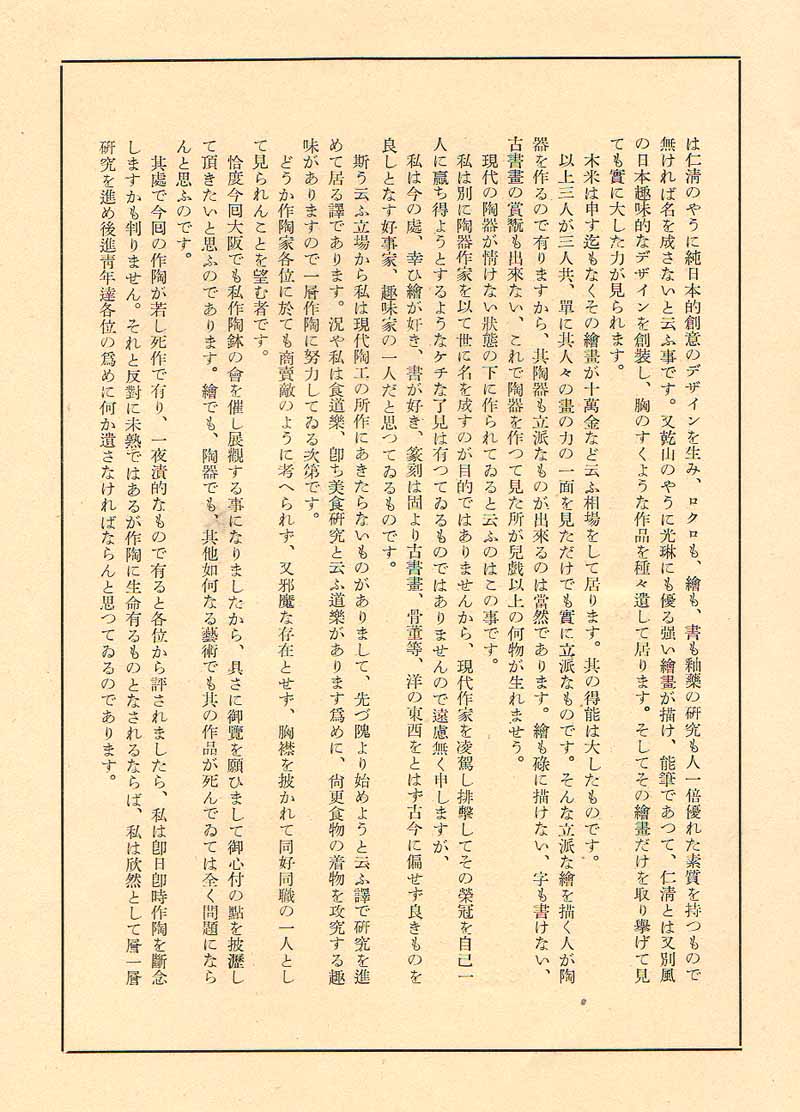 は仁淸のやうに純日本的創意のデザインを生み、ロクロも、繪も、書も釉藥の硏究も人一倍優れた素質を持つもので
無ければ名を成さないと云ふ事です。又乾山のやうに光琳にも優る强い繪畫が描け、能筆であつて、仁淸とは又別風
の日本趣味的なデザインを創裝し、胸のすくような作品を種々遺して居ります。そしてその繪畫だけを取り擧げて見
ても實に大した力が見られます。
木米は申す迄もなくその繪畫が十萬金など云ふ相場をして居ります。其の得能は大したものです。
以上三人が三人共、單に其人々の畫の力の一面を見ただけでも實に立派なものです。そんな立派な繪を描く人が陶
器を作るので有りますから、其陶器も立派なものが出來るのは當然であります。繪も碌に描けない、字も書けない、
古書畫の賞翫も出來ない、これで陶器を作つて見た所が兒戲以上の何物が生れませう。
現代の陶器が情けない狀態の下に作られてゐると云ふのはこの事です。
私は別に陶器作家を以て世に名を成すのが目的ではありませんから、現代作家を凌駕し排擊してその榮冠を自己一
人に贏ち得ようとするようなケチな了見は有つてゐるものではありませんので遠慮無く申しますが、
私は今の處、幸ひ繪が好き、書が好き、篆刻は固より古書畫、骨董等、洋の東西をとはず古今に偏せず良きものを
良しとなす好事家、趣味家の一人だと思つてゐるものです。
斯う云ふ立場から私は現代陶工の所作にあきたらないものがありまして、先づ隗より始めようと云ふ譯で硏究を進
めて居る譯であります。況や私は食道樂、卽ち美食硏究と云ふ道樂があります爲めに、尙更食物の着物を攻究する趣
味がありますので一層作陶に努力してゐる次第です。
どうか作陶家各位に於ても商賣敵のように考へられず、又邪魔な存在とせず、胸襟を披かれて同好同職の一人とし
て見られんことを望む者です。
恰度今回大阪でも私作陶鉢の會を催し展觀する事になりましたから、具さに御覽を願ひまして御心付の點を披瀝し
て頂きたいと思ふのであります。繪でも、陶器でも、其他如何なる藝術でも其の作品が死んでゐては全く問題になら
んと思ふのです。
其處で今回の作陶が若し死作で有り、一夜漬的なもので有ると各位から評されましたら、私は卽日卽時作陶を斷念
しますかも判りません。それと反對に未熟ではあるが作陶に生命有るものとなされるならば、私は欣然として層一層
硏究を進め後進靑年達各位の爲めに何か遺さなければならんと思つてゐるのであります。